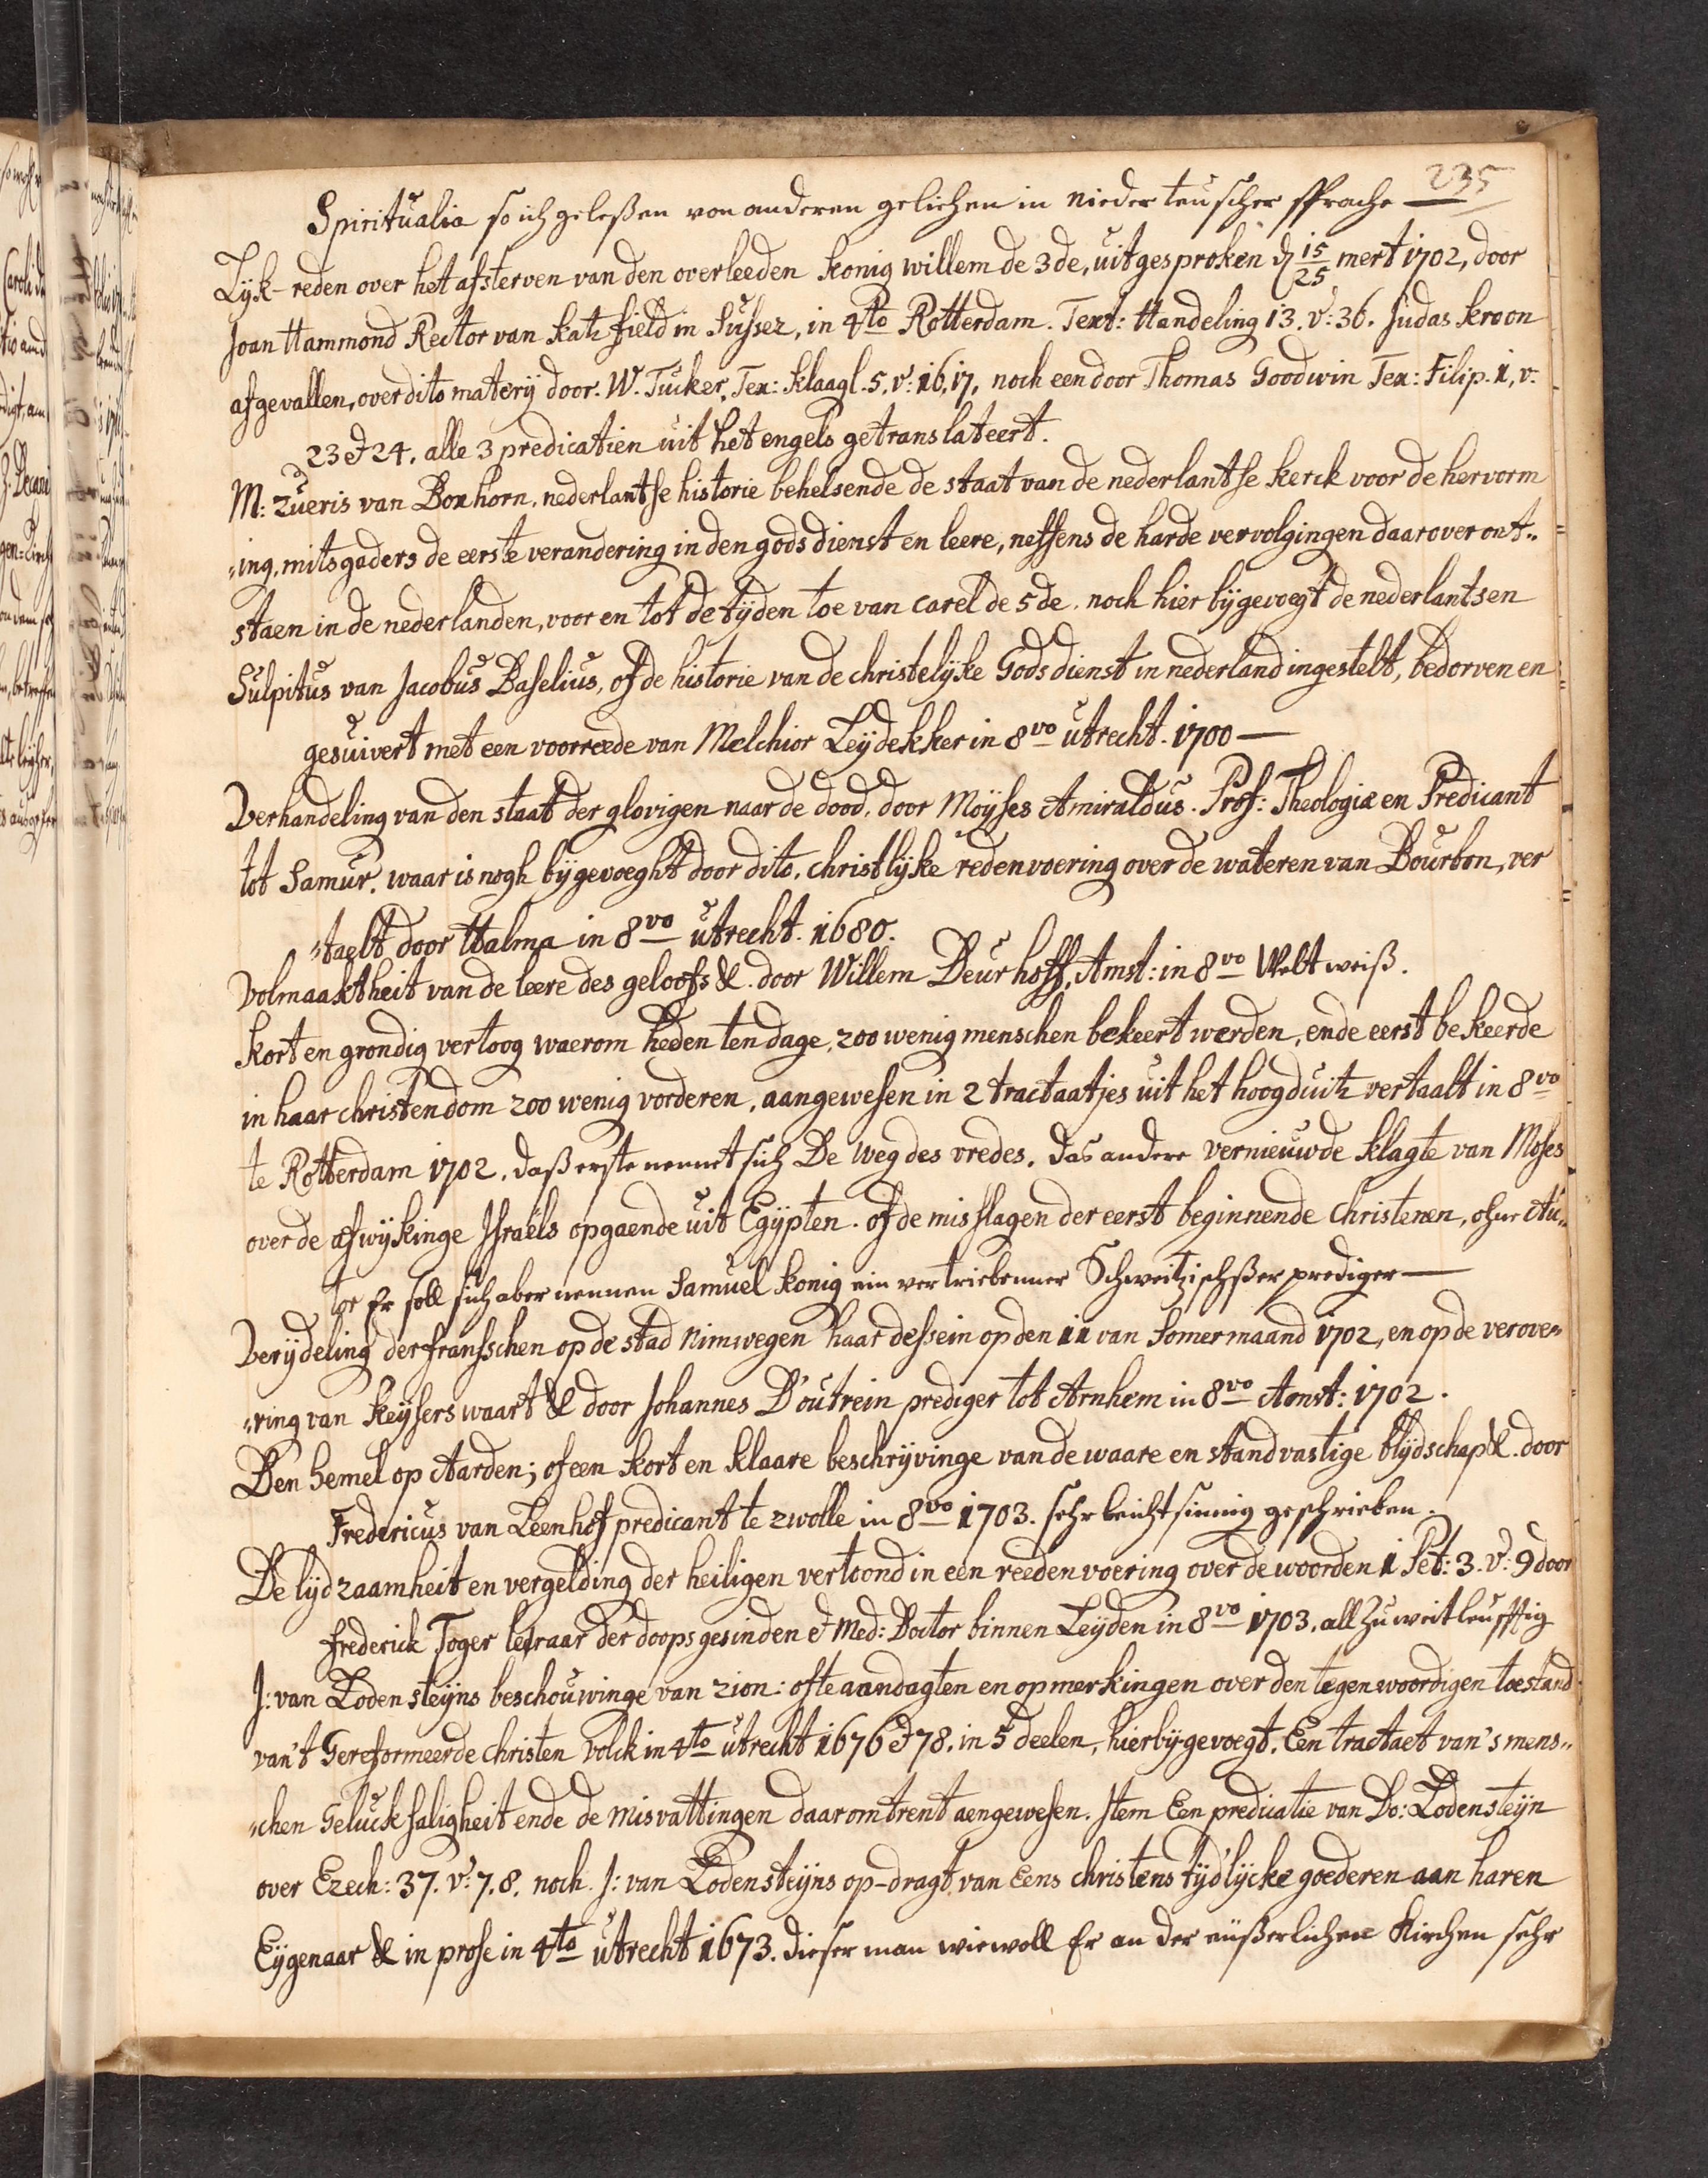 235
Spiritualia so ich geleßen von anderen geliehen in nieder teuscher sprache —
Lÿk-reden over het afsterven van den overleeden konig willem de 3 de, uitgesproken d 15/25 mert 1702, door
Joan Hammond Rector van Katzfield in Sussex, in 4to Rotterdam. Text: Handeling 13. v: 36. Judas kroon
afgevallen, over dito materÿ door. W. Tucker, Tex: klaagl. 5. v: 16, 17, noch een door Thomas Goodwin Tex: Filip. 1, v:
23 & 24. alle 3 predicatien uit het engels getranslateert.
M: zueris van Boxhorn, nederlantse historie behelsende de staat van de nederlantse kerck voor de hervorm
„ing, mitsgaders de eerste verandering in den godsdienst en leere, neffens de harde vervolgingen daar over ont„
staen in de nederlanden, voor en tot de tÿden toe van carel de 5 de. noch hier bÿgevoegt de nederlantsen
Sulpitus van Jacobus Baselius, of de historie van de christelÿke Godsdienst in nederland ingestelt, bedorven en
gesuivert met een voorreede van Melchior Leÿdekker in 8vo utrecht. 1700 —
Verhandeling van den staat der glovigen naar de dood, door Moÿses Amiraldus. Prof: Theologiæ en Predicant
tot Samur. waar is nogh bÿgevoeght door dito, christlÿke redenvoering over de wateren van Bourbon, ver
„taelt door Halma in 8vo utrecht. 1680.
Volmaaktheit van de leere des geloofs &. door Willem Deurhoff, Amst: in 8vo Weltweiß.
kort en grondig vertoog waerom heden ten dage, zoo wenig menschen bekeert werden, ende eerst bekeerde
in haar christendom zoo wenig vorderen, aangewesen in 2 tractaatjes uit het hoogduitz vertaalt in 8vo
te Rotterdam 1702. daß erste nennet sich De weg des vredes. das andere vernieuwde klagte van Moses
over de afwÿkinge Israëls opgaende uit Egÿpten. of de misslagen der eerst beginnende christenen, ohne Au„
tor Er soll sich aber nennen Samuel konig ein vertriebenner Schweitzischßer prediger —
Verÿdeling der fransschen op de stad nimwegen haar dessein op den 11 van Somermaand 1702, en op de verove„
„ring van keÿserswaart & door Johannes D'outrein prediger tot Arnhem in 8vo Amst: 1702.
Den hemel op Aarden; of een kort en klaare beschrÿvinge van de waare en standvastige blÿdschap &. door
Fredericus van Leenhof predicant te zwolle in 8vo 1703. sehr leichtsinnig geschrieben.
De lÿdzaamheit en vergelding der heiligen vertoond in een reedenvoering over de woorden 1 Pet: 3. v: 9 door
frederick Toger leeraar der doopsgesinden & Med: Doctor binnen Leÿden in 8vo 1703. all zu weitleufftig
J: van Lodensteÿns beschouwinge van zion: ofte aandagten en opmerkingen over den tegenwoordigen toestand
van't Gereformeerde christen volck in 4to utrecht 1676 & 78. in 5 deelen, hierbÿgevoegt. Een tractaet van's mens„
„chen Geluckfaligheit ende de misvattingen daaromtrent aengewesen. Item Een predicatie van Do: Lodensteÿn
over Ezech: 37. v: 7. 8. noch. J: van Lodensteÿns op-dragt van Eens christens tÿdlÿcke goederen aan haren
Eÿgenaar & in prose in 4to utrecht 1673. dieser man wiewoll Er an der eüßerlichen Kirchen sehr